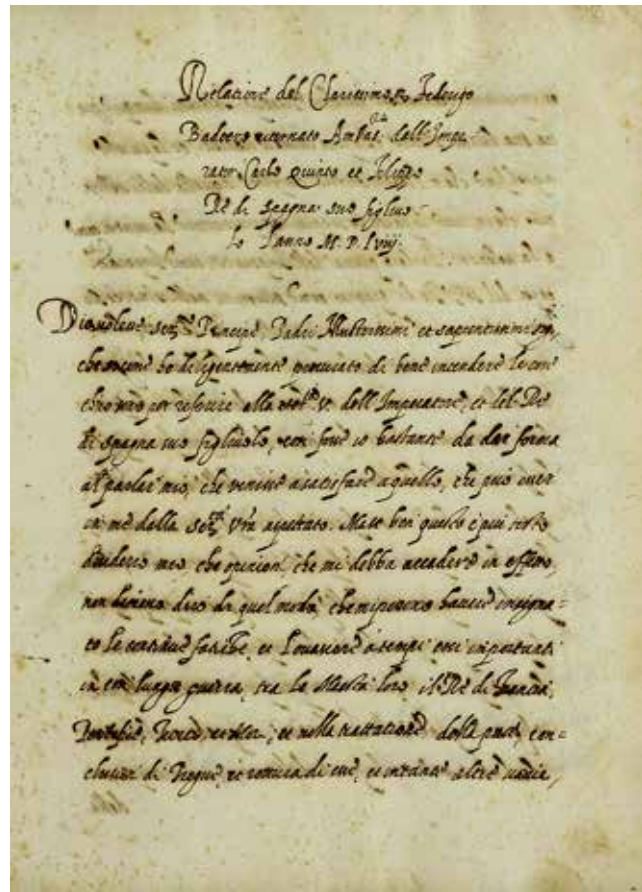 Relatione del Clarissimo Sr Federigo
Badoero ritornato Ambas.re dall'Impe
rator Carlo Quinto et Filippo
Rè di Spagna suo figliuo
lo L'anno M. D. Lviij.
Principe Padri Illustrissimi et sapientissimi Sri,
che ho diligentemente procurato di bene intendere le cose
per riferire alla V. dell'Imperatore, et del Rè
di Spagna suo figliuolo, non sono io bastante da dar forma
al parlar mio, che venisse a satisfare a quello, che può aver
in me dalla Ser.tà V'ra aspettato. Ma se ben questo è più certo
mio che opinion, che mi debba accadere in effetto,
non dimeno dirò di quel modo, che mi havere insegna=
to le continue fatiche, et a tempi così importanti
in così lunga guerra, tra le Maestà loro, il Rè di Francia,
Pontefice, et nella trattatione della pace, con=
clusion di Tregue, et rottura di esse, et in tante altre varie,